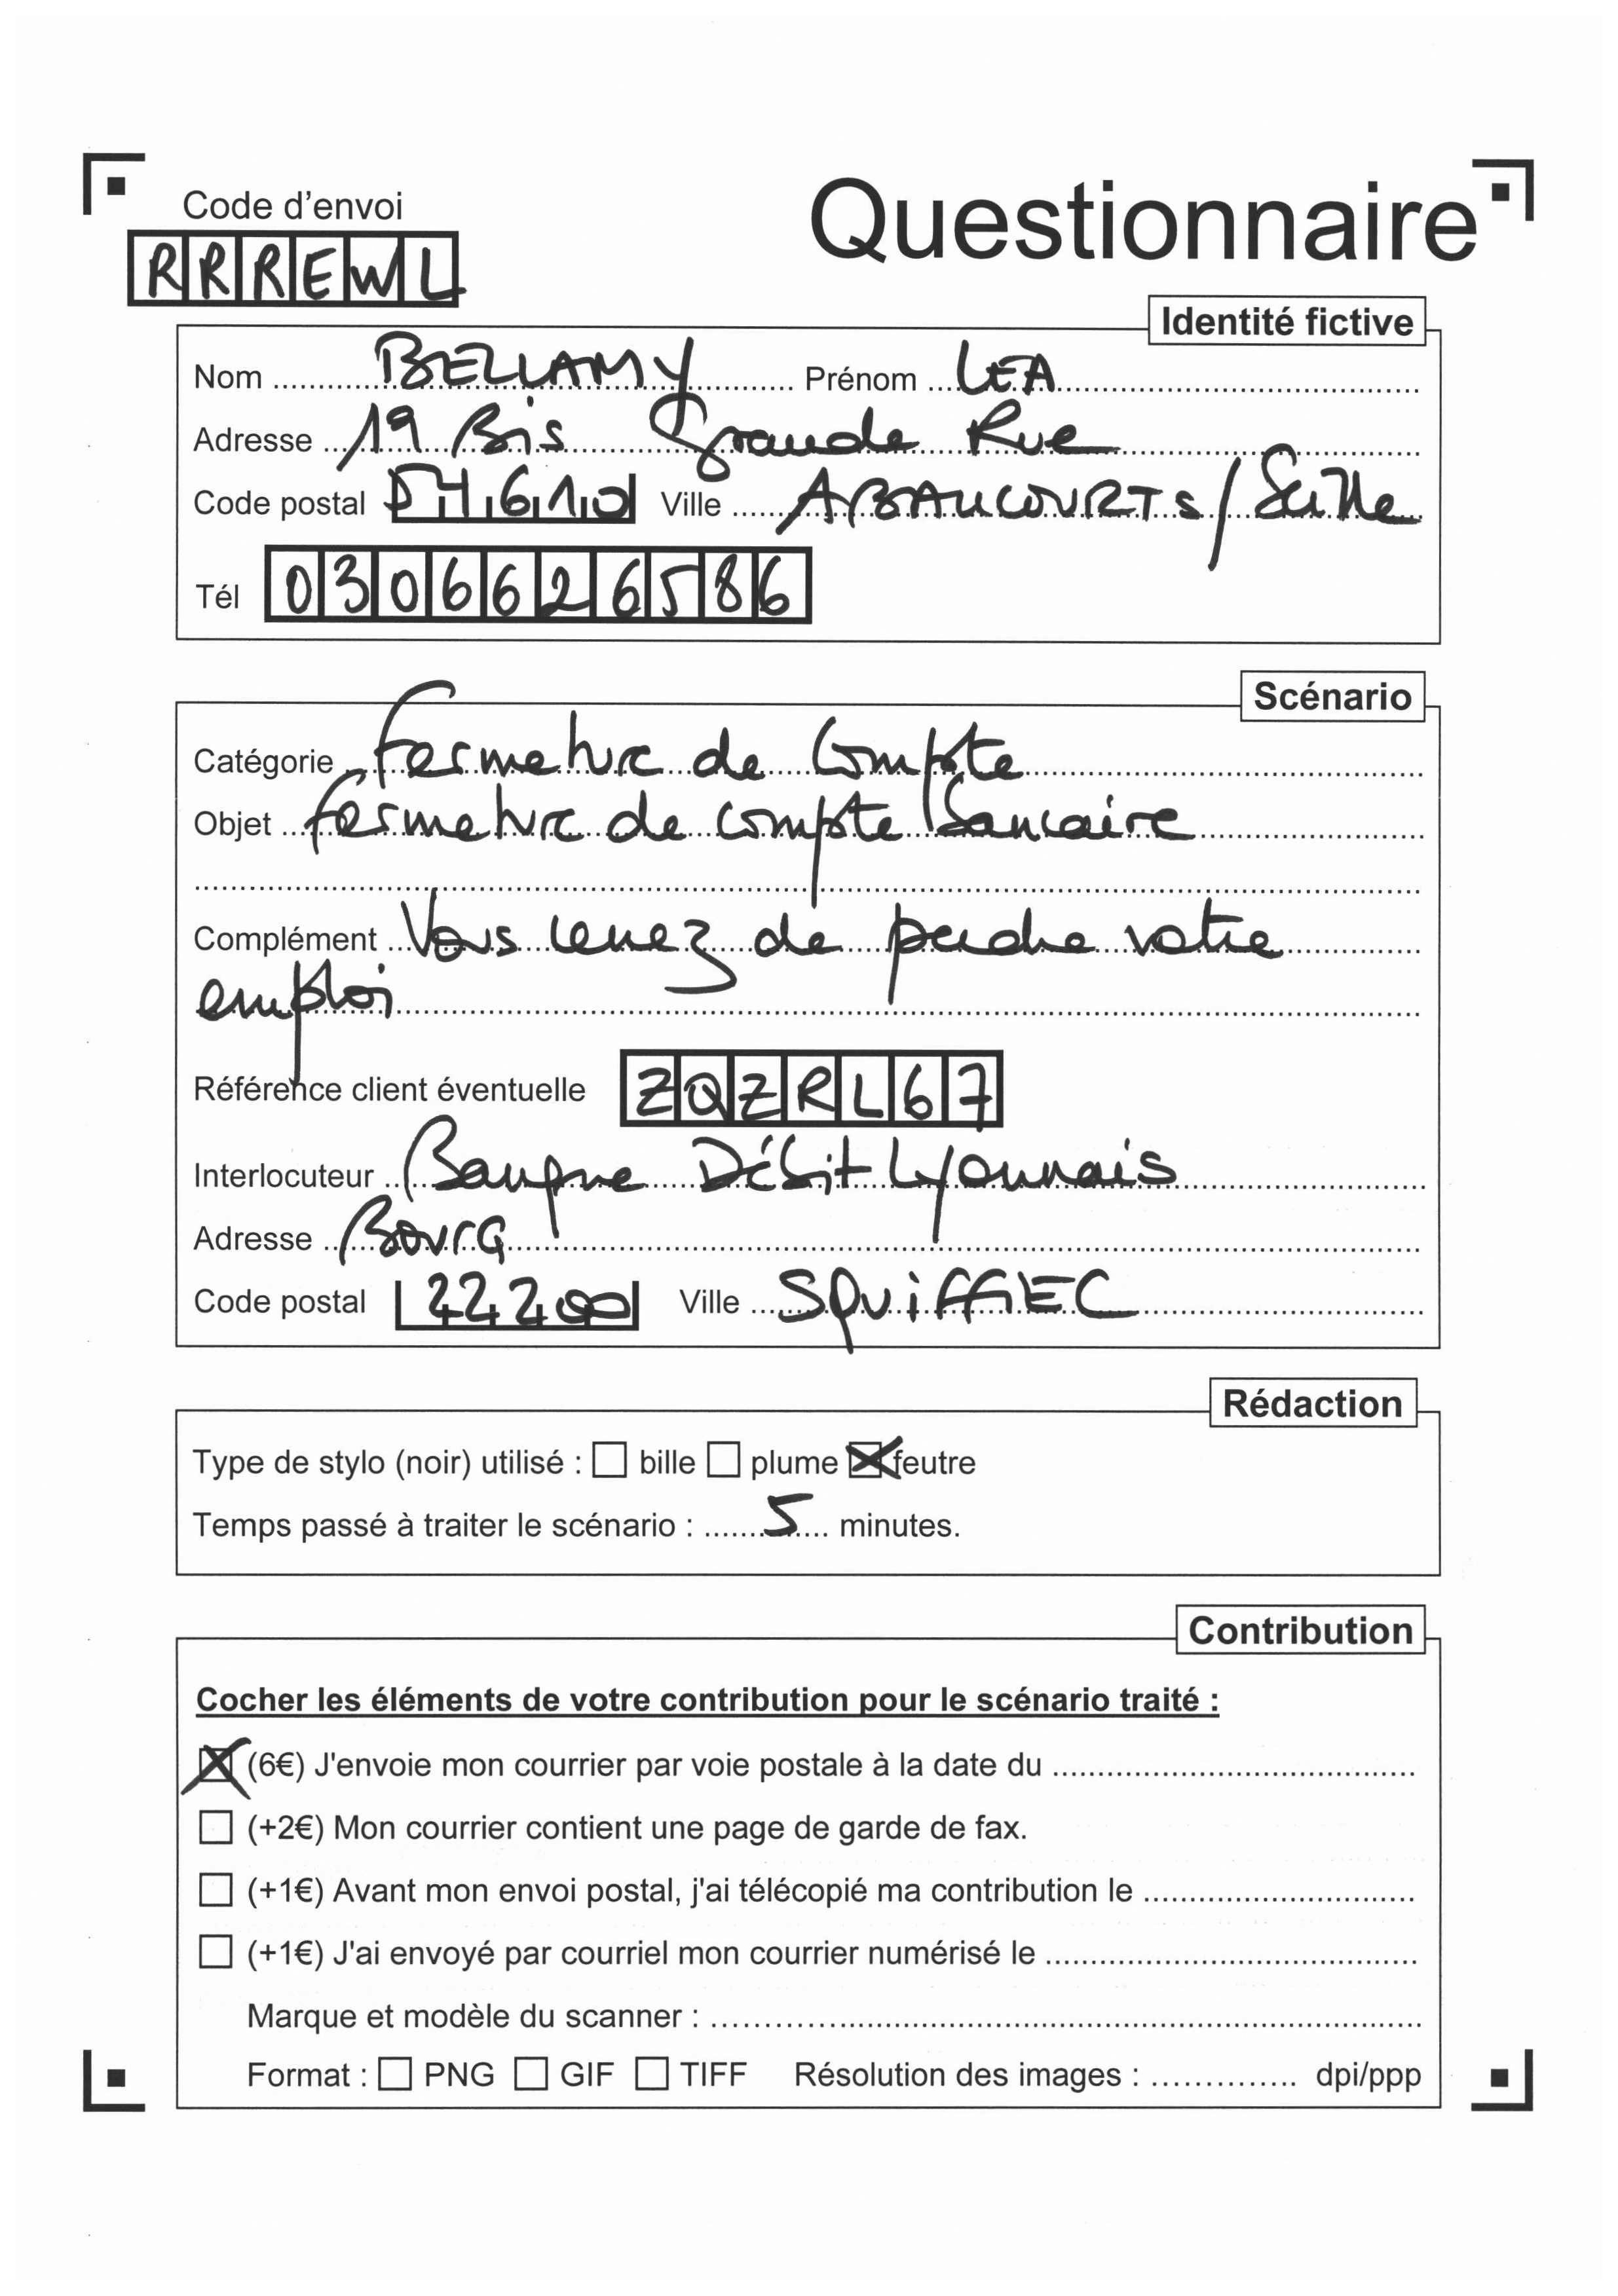 Code d'envoi
Questionnaire
RRREWL
Identité fictive
Nom BELLAMY Prénom LEA
Adresse 19 Bis grande Rue
Code postal 54610 Ville ABAUCOURTS/Seille
Tél 0306626586
Scénario
Catégorie Fermeture de Compte
Objet Fermeture de compte bancaire
Complément Vous venez de perdre votre
emploi
Référence client éventuelle ZQZRL67
Interlocuteur Banque Débit Lyonnais
Adresse Bourg
Code postal 22200 Ville SQUIFFIEC
Rédaction
Type de stylo (noir) utilisé : bille plume feutre
Temps passé à traiter le scénario : 5 minutes.
Contribution
Cocher les éléments de votre contribution pour le scénario traité :
(6€) J'envoie mon courrier par voie postale à la date du
(+2€) Mon courrier contient une page de garde de fax.
(+1€) Avant mon envoi postal, j'ai télécopié ma contribution le
(+1€) J'ai envoyé par courriel mon courrier numérisé le
Marque et modèle du scanner :
Format : PNG GIF TIFF Résolution des images : dpi/ppp